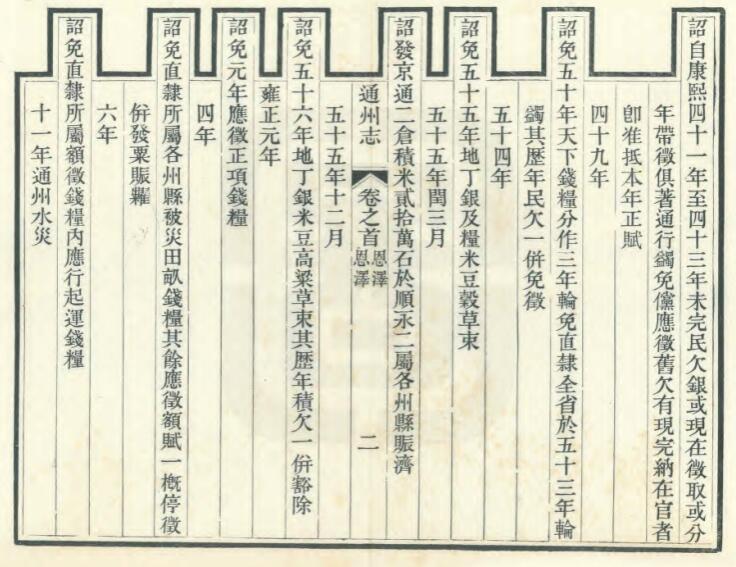 詔自康熙四十一年至四十三年未完民欠銀或現在徵取或分
年帶徵俱著通行蠲免儻應徵舊欠有現完納在官者
卽准抵本年正賦
四十九年
詔免五十年天下錢糧分作三年輪免直隸全省於五十三年輪
蠲其歷年民欠一併免徵
五十四年
詔免五十五年地丁銀及糧米豆穀草束
五十五年閏三月
詔發京通二倉積米貳拾萬石於順永二屬各州縣賑濟
通州志 卷之首 恩澤 恩澤 二
五十五年十二月
詔免五十六年地丁銀米豆高粱草束其歷年積欠一併豁除
雍正元年
詔免元年應徵正項錢糧
四年
詔免直隸所屬各州縣被災田畝錢糧其餘應徵額賦一槪停徵
併發粟賑糶
六年
詔免直隸所屬額徵錢糧內應行起運錢糧
十一年通州水災